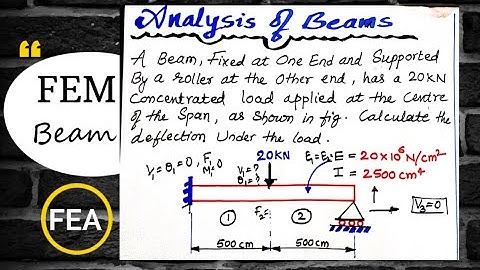 Analysis of Beams
“
FEM
Beam
FEA
A Beam, Fixed at One End and Supported
By a roller at the other end, has a 20KN
Concentrated load applied at the Centre
of the Span, as Shown in fig. Calculate the
deflection Under the load.
V₁=θ₁=0, F₁
M₁=0
20KN
V₁=?
θ₁=?
E₁=E₂=E = 20×10⁶ N/cm²
I = 2500 cm⁴
F₂=
①
②
V₃=0
500cm
500cm